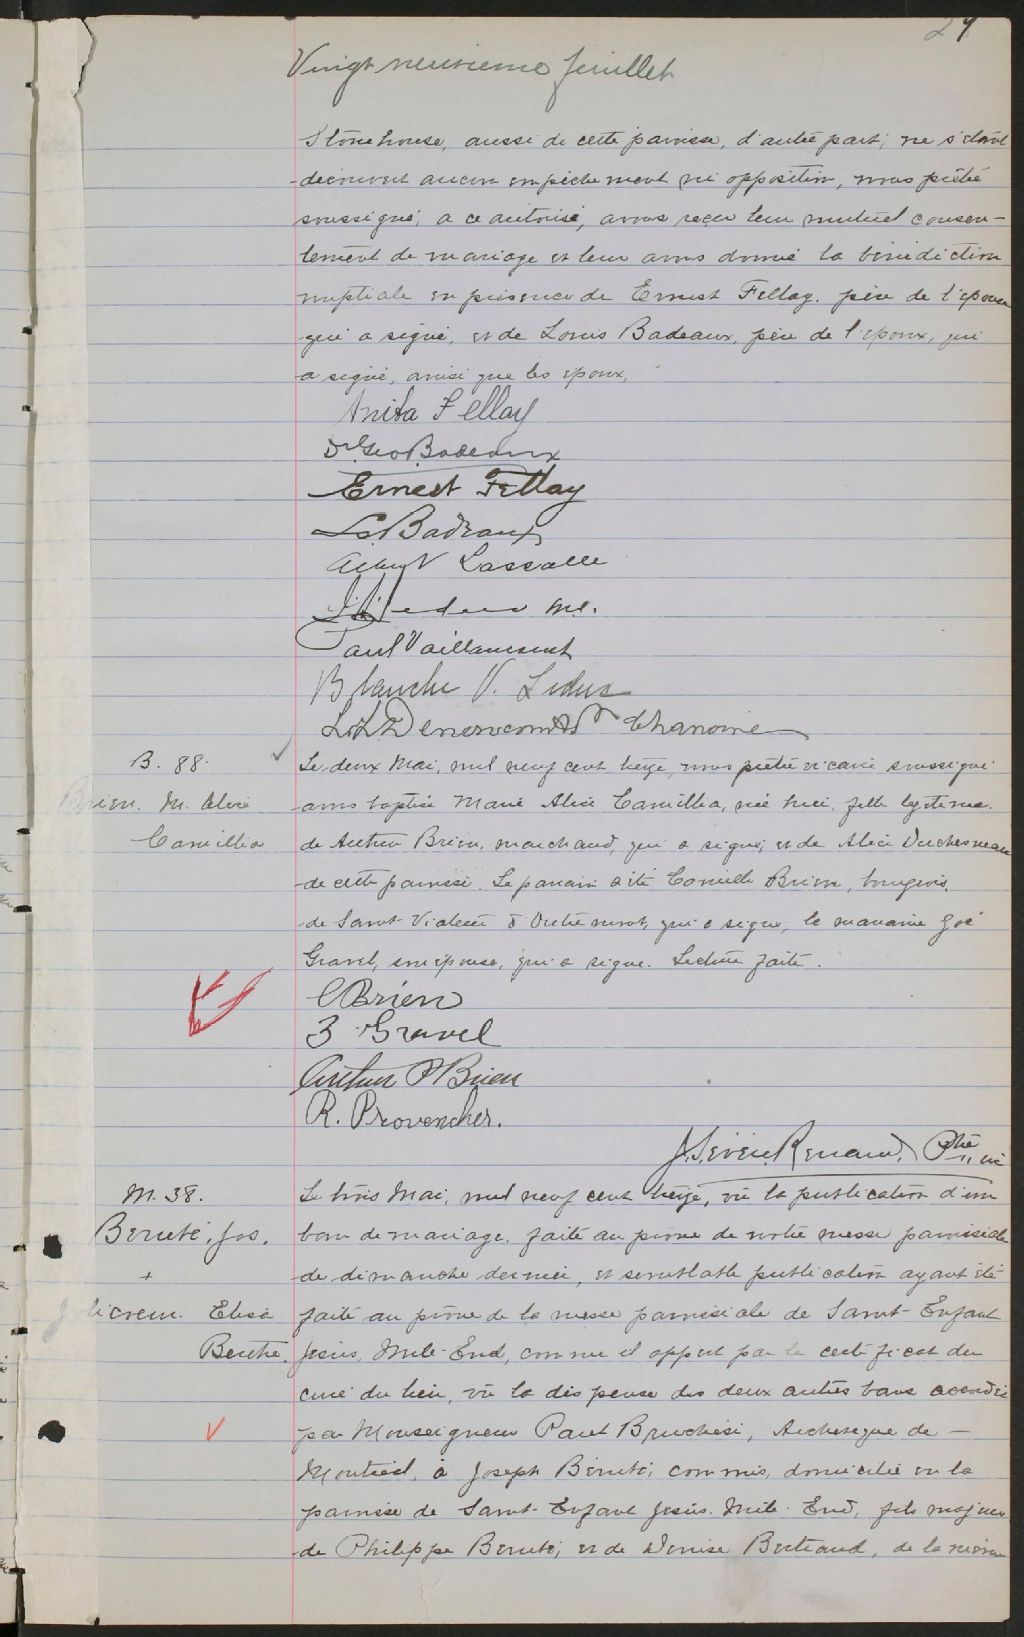 29
Vingt neuvieme feuillet
Stonehouse, aussi de cette paroisse, d'autre part; ne s'étant
découvert aucun empêchement ni opposition, nous prêtre
soussigné, à ce autorisé, avons reçu leur mutuel consen-
tement de mariage et leur avons donné la bénédiction
nuptiale en présence de Ernest Fellay, père de l'épouse
qui a signé, et de Louis Badeaux, père de l'époux, qui
a signé, ainsi que les époux,
Anita Fellay
Dr Geo Badeaux
Ernest Fellay
Ls Badeaux
Albert Lassalle
Paul Vaillancourt
Blanche V. Leduc
Chanoine
B. 88.
Brien. M. Alice
Camillia
Le deux Mai, mil neuf cent treize, nous prêtre vicaire soussigné
avons baptisé Marie Alice Camillia, née hier, fille légitime
de Arthur Brien, marchand, qui a signé, et de Alice Duchesneau
de cette paroisse. Le parrain a été Camille Brien, bourgeois,
de Saint-Viateur d'Outremont, qui a signé, la marraine Zoé
Gravel, son épouse, qui a signé. Lecture faite.
C Brien
Z. Gravel
Arthur Brien
R. Provencher.
J. Sévère Renaud, Ptre vic
M. 38.
Berubé, Jos.
+
Elisa
Berthe.
Le trois Mai, mil neuf cent treize, vu la publication d'un
ban de mariage, faite au prône de notre messe paroissiale
de dimanche dernier, et semblable publication ayant été
faite au prône de la messe paroissiale de Saint-Enfant
Jésus, Mile-End, comme il appert par le certificat du
curé du lieu, vu la dispense des deux autres bans accordée
par Monseigneur Paul Bruchési, Archevêque de —
Montréal, à Joseph Bérubé, commis, domicilié en la
paroisse de Saint-Enfant Jésus. Mile-End, fils majeur
de Philippe Berubé, et de Denise Bertrand, de la même